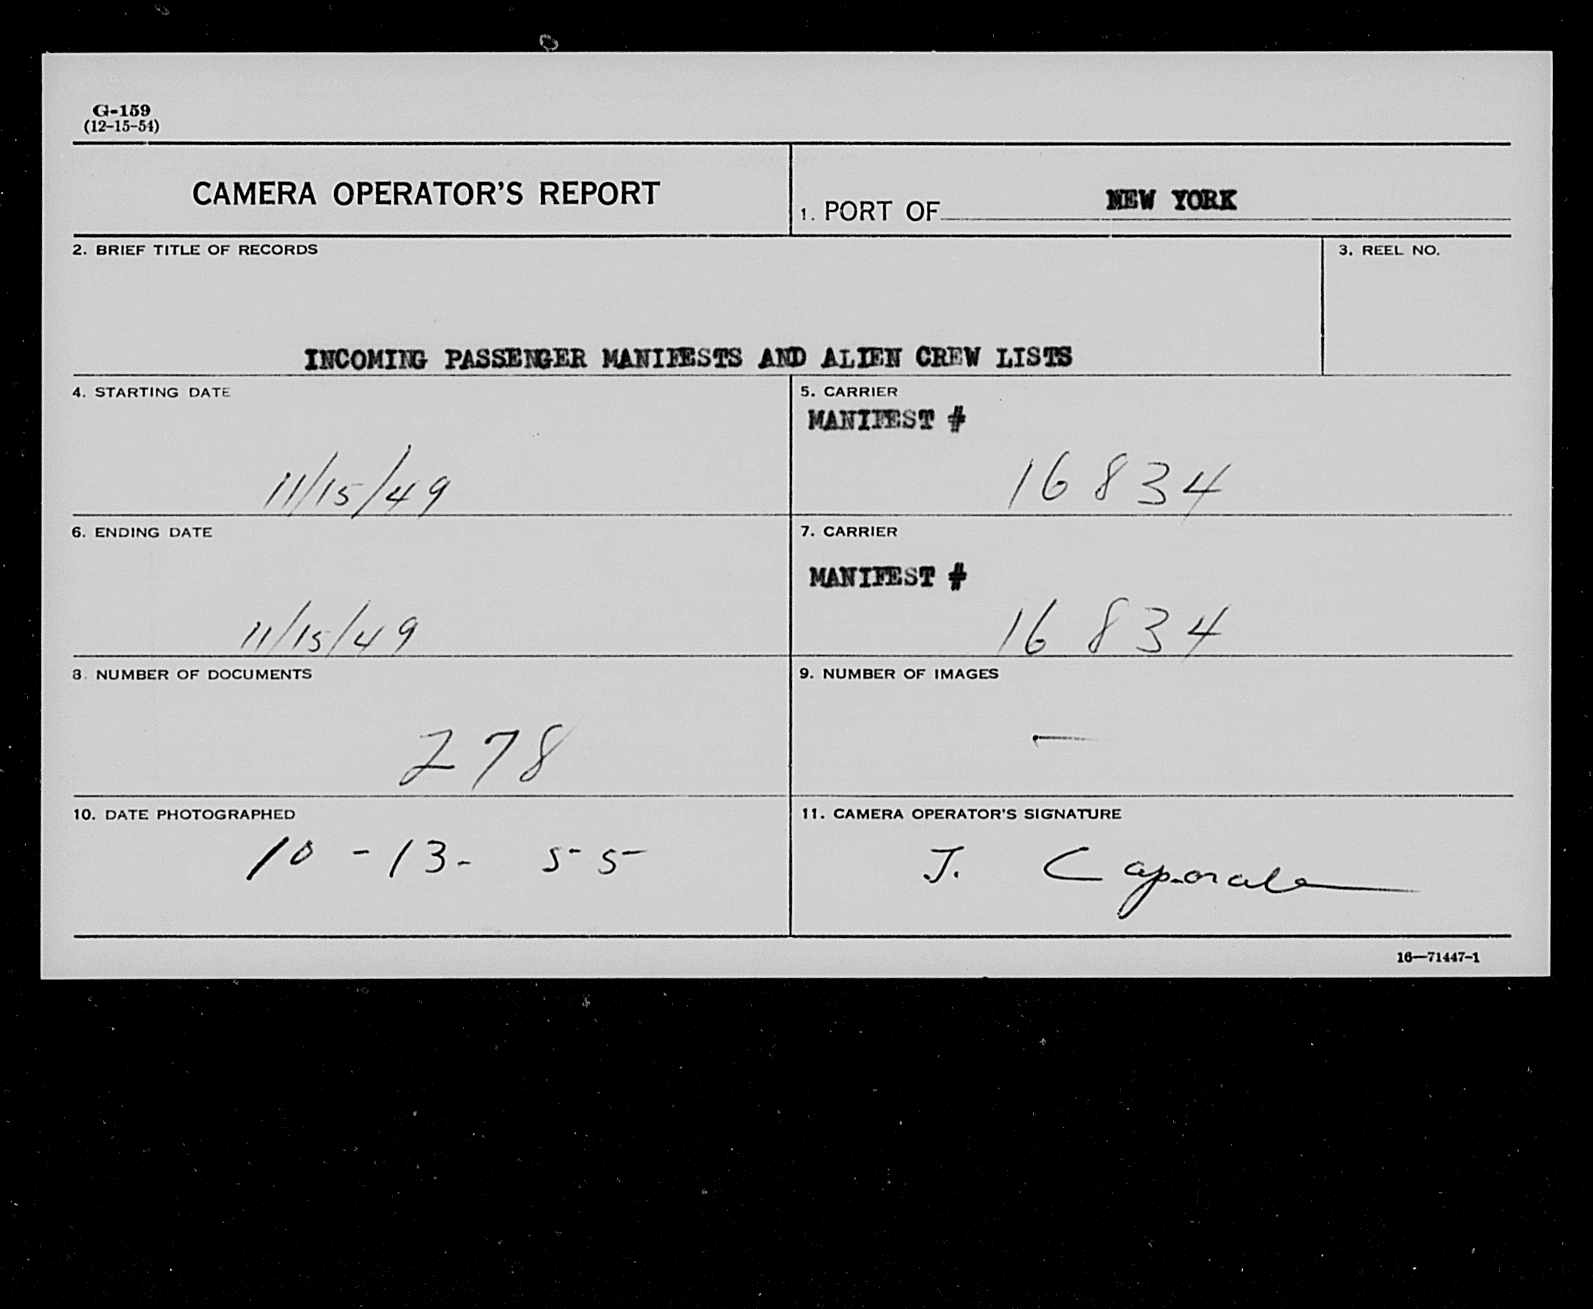 G-159
(12-15-54)
CAMERA OPERATOR'S REPORT
1. PORT OF NEW YORK
2. BRIEF TITLE OF RECORDS
3. REEL NO.
INCOMING PASSENGER MANIFESTS AND ALIEN CREW LISTS
4. STARTING DATE
11/15/49
5. CARRIER
MANIFEST #
16834
6. ENDING DATE
11/15/49
7. CARRIER
MANIFEST #
16834
8. NUMBER OF DOCUMENTS
278
9. NUMBER OF IMAGES
—
10. DATE PHOTOGRAPHED
10-13-55
11. CAMERA OPERATOR'S SIGNATURE
J. Caporale
16—71447-1